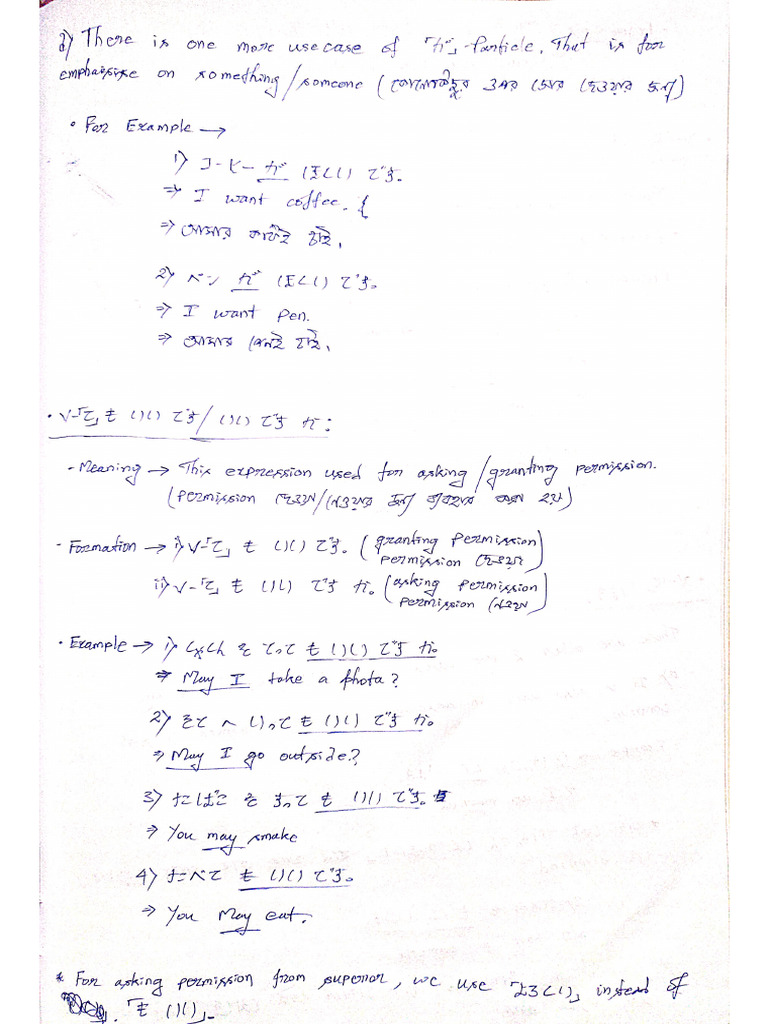 2) There is one more usecase of 「が」-Particle. That is for
emphaisise on something/someone (কোনোকিছুর ওপর জোর দেওয়ার জন্য)
• For Example →
1) コーヒー が ほしい です。
⇒ I want coffee.
⇒ আমার কফিই চাই।
2) ペン が ほしい です。
⇒ I want Pen.
⇒ আমার পেনই চাই।
• V-「て」も いい です/いい です か:
- Meaning → This expression used for asking/granting permission.
(permission দেওয়া/নেওয়ার জন্য ব্যবহার করা হয়)
- Formation → i) V-「て」 も いい です。 (granting Permission
permission দেওয়া)
ii) V-「て」 も いい です か。 (asking permission
permission নেওয়া)
• Example → 1) しゃしん を とって も いい です か。
⇒ May I take a photo?
2) そと へ いって も いい です か。
⇒ May I go outside?
3) たばこ を すって も いい です。
⇒ You may smake
4) たべて も いい です。
⇒ You May eat.
* For asking permission from superior, we use 「よろしい」 instead of
「も いい」.